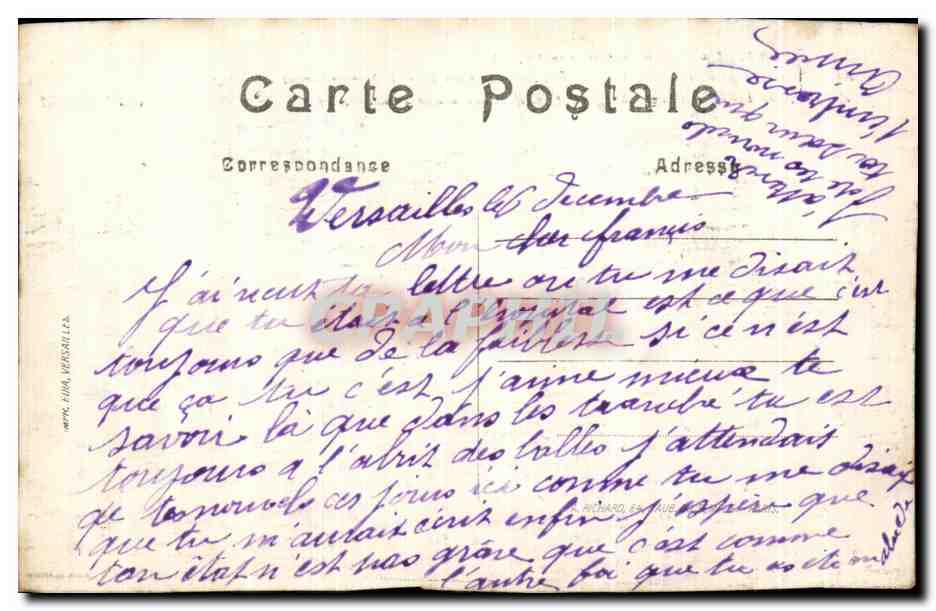 Carte Postale
Correspondance
Adresse
Versailles le 6 décembre
Mon cher françis
J'ai reçut ta lettre ou tu me disait
que tu étais a l'hopital est ce que c'est
toujours que de la faiblesse si ce n'est
que ça tu c'est j'aime mieux te
savoir là que dans les tranché tu est
toujours a l'abrit des balles j'attendait
de tes nouvels ces jours ici comme tu me disait
que tu m'aurait écrit enfin j'espère que
ton état n'est pas grâve que c'est comme
l'autre foi que tu as été malade
à ta
IMPR. EDIA, VERSAILLES
A. RICHARD, 84
CRAPHIL